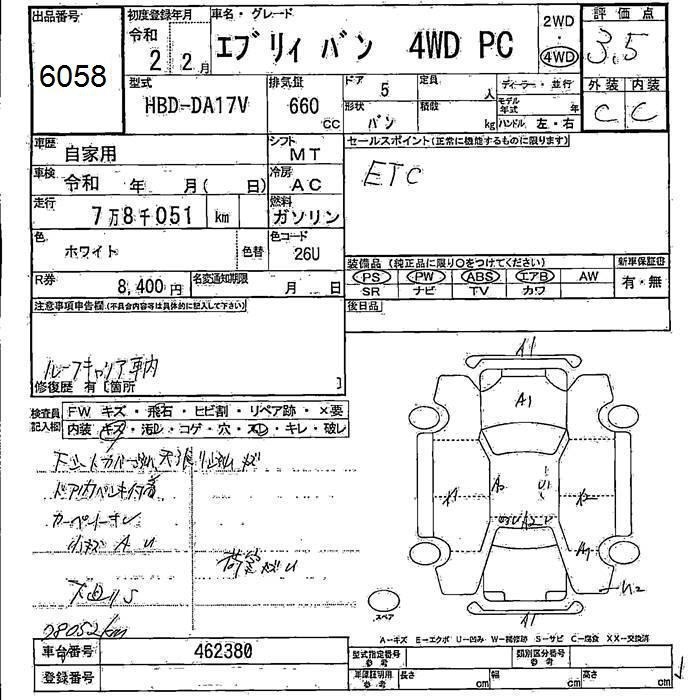 出品番号 初度登録年月 車名・グレード 2WD・4WD 評価点
6058 令和 2 2月 エブリィ バン 4WD PC 3.5
型式 排気量 ドア 5 定員 人 ディーラー・並行 外装 内装
HBD-DA17V 660 CC 形状 バン 積載 kg モデル年式 年 ハンドル 左・右 C C
車歴 自家用 シフト MT セールスポイント(正常に機能するものに限ります)
車検 令和 年 月( 日) 冷房 AC ETC
走行 7万8千051 km 燃料 ガソリン
色 ホワイト 色替 色コード 26U
装備品 (純正品に限り○をつけてください) 新車保証書
R券 8,400円 名変通知期限 月 日 PS PW ABS エアB AW 有・無
SR ナビ TV カワ
注意事項申告欄(不具合内容等は具体的に記入して下さい) 後日品
ルーフキャリア車内
修復歴 有〔箇所 〕
検査員記入欄 FW キズ・飛石・ヒビ割・リペア跡・×要
内装 キズ・汚レ・コゲ・穴・スレ・キレ・破レ
A1
A1
カーペット
A U
荷室
下回りS
78052km
A2
A1
スペア
A-キズ E-エクボ U-凹み W-補修跡 S-サビ C-腐食 XX-交換済
車台番号 462380 型式指定番号 参考 類別区分番号 参考
登録番号 車庫証明用 参考 長さ cm 幅 cm 高さ cm